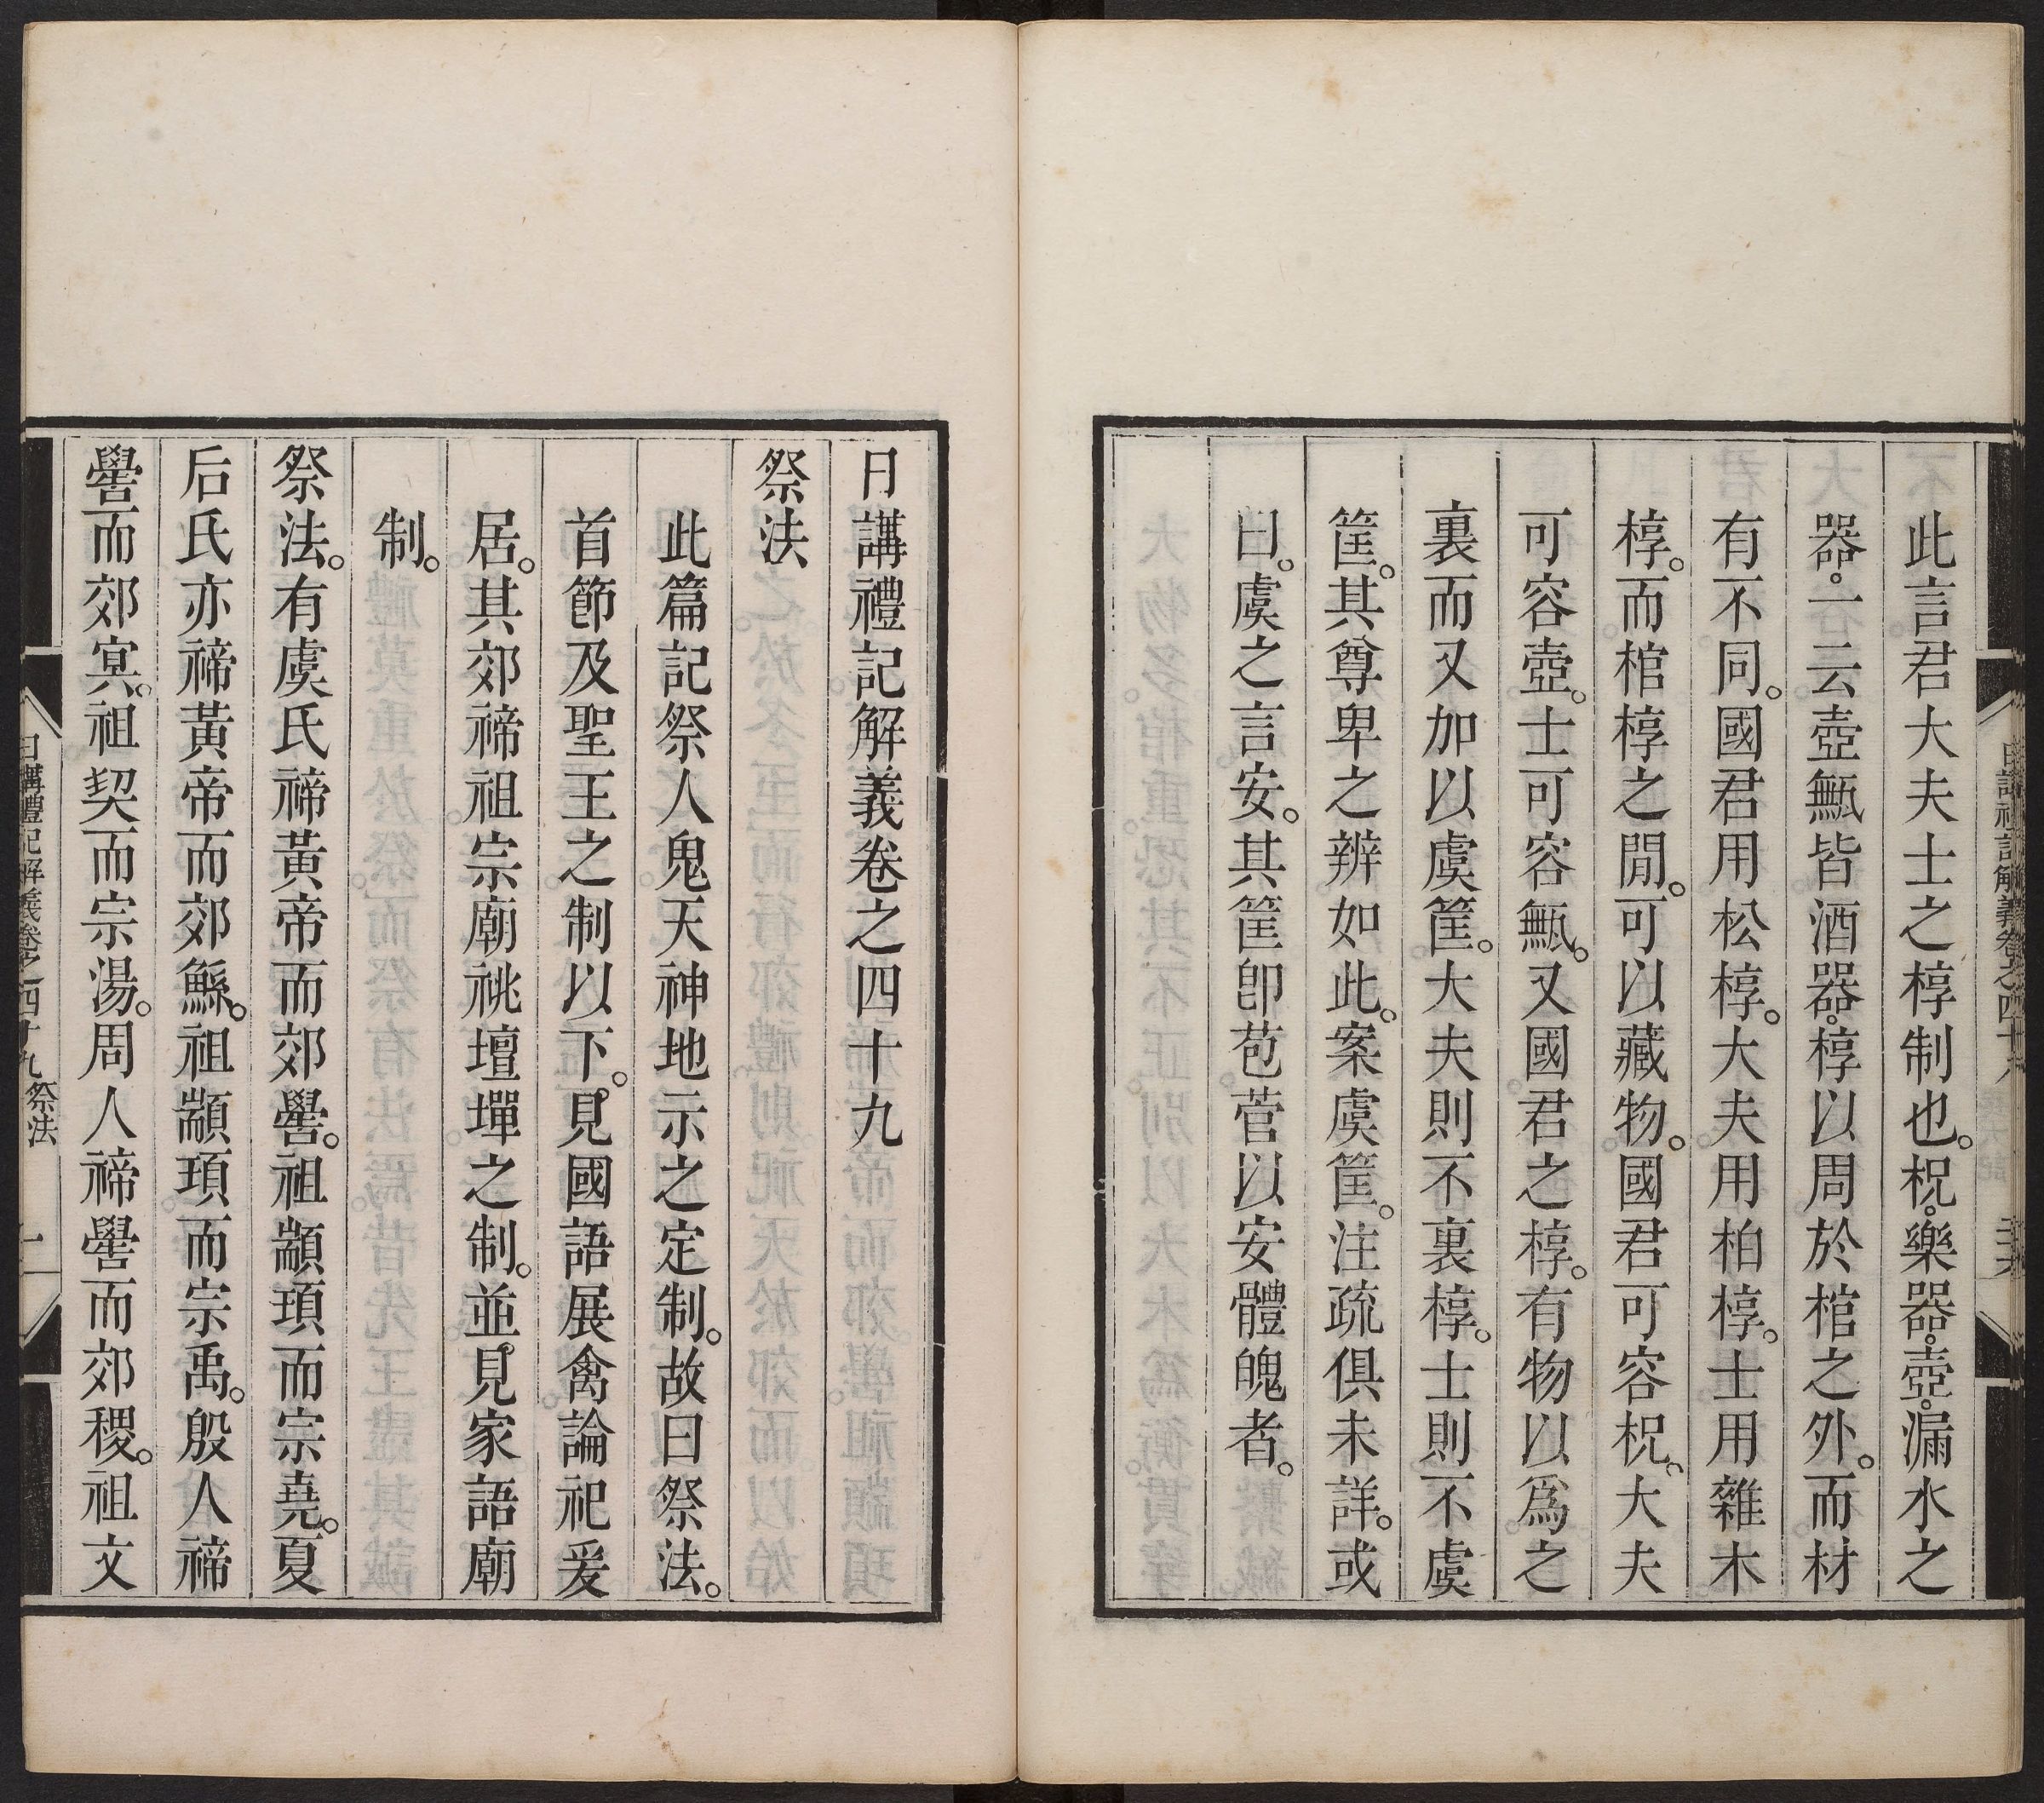 此言君大夫士之椁制也。柷。樂器。壺。漏水之
器。一云壺甒皆酒器。椁以周於棺之外。而材
有不同。國君用松椁。大夫用柏椁。士用雜木
椁。而棺椁之閒。可以藏物。國君可容柷。大夫
可容壺。士可容甒。又國君之椁。有物以爲之
裏而又加以虞筐。大夫則不裏椁。士則不虞
筐。其尊卑之辨如此。案虞筐。注疏俱未詳。或
曰。虞之言安。其筐卽苞菅以安體魄者。
日講禮記解義卷之四十九
祭法
此篇記祭人鬼天神地示之定制。故曰祭法。
首節及聖王之制以下。見國語展禽論祀爰
居。其郊禘祖宗廟祧壇墠之制。並見家語廟
制。
祭法。有虞氏禘黃帝而郊嚳。祖顓頊而宗堯。夏
后氏亦禘黃帝而郊鯀。祖顓頊而宗禹。殷人禘
嚳而郊冥。祖契而宗湯。周人禘嚳而郊稷。祖文
日講禮記解義卷之四十九 祭法 一